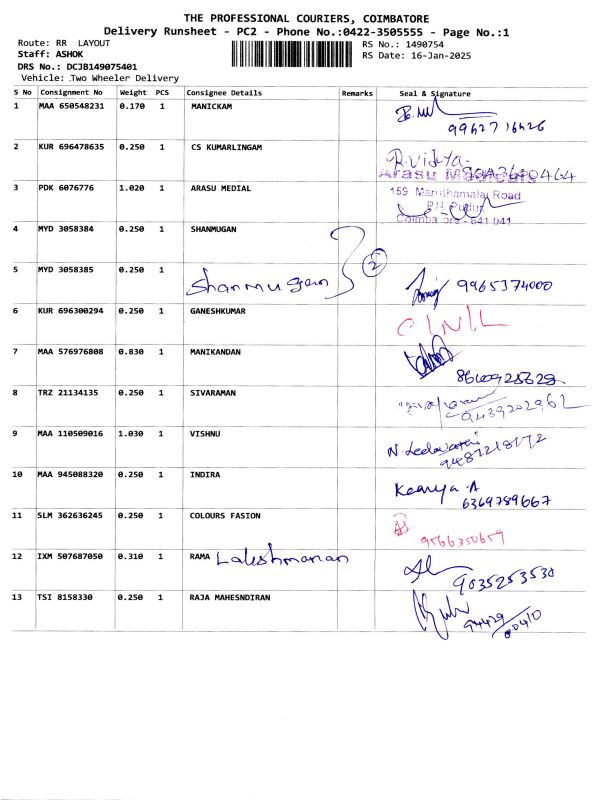 THE PROFESSIONAL COURIERS, COIMBATORE
Delivery Runsheet - PC2 - Phone No.:0422-3505555 - Page No.:1
Route: RR LAYOUT
Staff: ASHOK
DRS No.: DCJB149075401
Vehicle: Two Wheeler Delivery
RS No.: 1490754
RS Date: 16-Jan-2025
S No Consignment No Weight PCS Consignee Details Remarks Seal & Signature
1 MAA 650548231 0.170 1 MANICKAM
9962716426
2 KUR 696478635 0.250 1 CS KUMARLINGAM
R. Vidya
3 PDK 6076776 1.020 1 ARASU MEDIAL
Arasu
159 Maruthamalai Road
P.N. Pudur
Coimbatore - 641 041
4 MYD 3058384 0.250 1 SHANMUGAN
2
5 MYD 3058385 0.250 1
Shanmugan
9965374000
6 KUR 696300294 0.250 1 GANESHKUMAR
C/N/L
7 MAA 576976808 0.830 1 MANIKANDAN
8 TRZ 21134135 0.250 1 SIVARAMAN
9439202962
9 MAA 110509016 1.030 1 VISHNU
N. Leelavathi
9487218172
10 MAA 945088320 0.250 1 INDIRA
Keanya A
6369789667
11 SLM 362636245 0.250 1 COLOURS FASION
9566350659
12 IXM 507687050 0.310 1 RAMA Lakshmanan
9035253530
13 TSI 8158330 0.250 1 RAJA MAHESNDIRAN
94429
00410